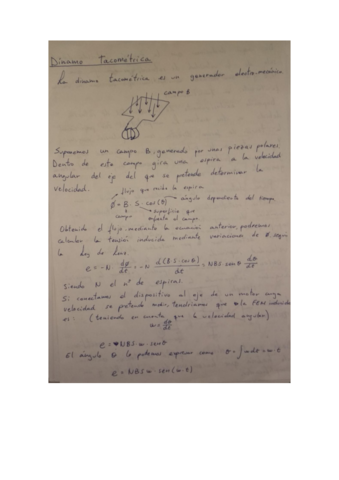 Dinamo Tacométrica
La dinamo tacométrica es un generador electa-mecánico
campo B
Suponemos un campo B, generado por unas piezas polares
Dentro de este campo gira una espira a la velocidad
angular del eje del que se pretende determinar la
velocidad.
flujo que recibe la espira
Φ = B · S · cos(θ) ángulo dependiente del campo
campo superficie que
Obtenido el flujo mediante la ecuación anterior, podremos
calcular la tensión inducida mediante variaciones de Φ según
la Ley de
e = -N · dΦ/dt = -N d(B·S·cosθ)/dt = NBS cosθ dθ/dt
Siendo N el nº de espiras.
Si conectamos el dispositivo al eje de un motor cuya
velocidad se pretende medir, tendríamos que la FEM inducida
es: (teniendo en cuenta que la velocidad angular)
ω = dθ/dt
e = NBS·ω·cosθ
El ángulo θ lo podemos expresar como θ = ∫ω dt = ω·t
e = NBS·ω·cos(ω·t)